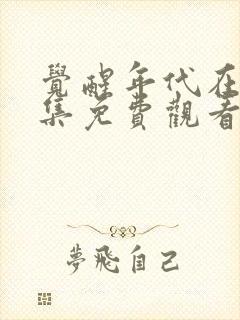 覺醒年代在
集免費觀看
夢飛自己